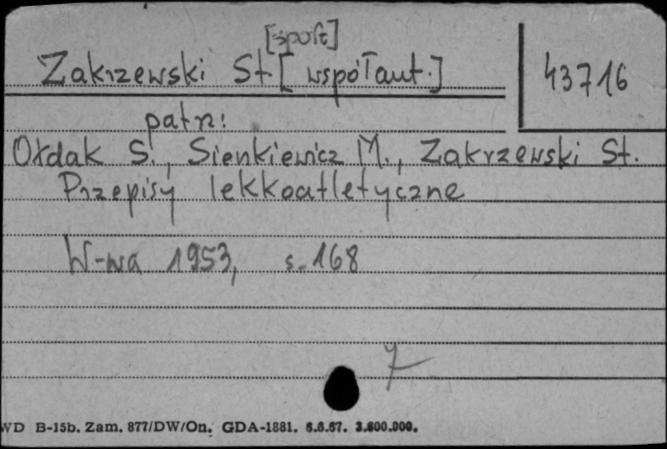 [sport]
Zakrzewski St [współaut.]
43716
patrz:
Ołdak S., Sienkiewicz M., Zakrzewski St.
Przepisy lekkoatletyczne
W-wa 1953, s. 168
7
WD B-15b. Zam. 877/DW/On. GDA-1881. 6.6.67. 3.600.000.